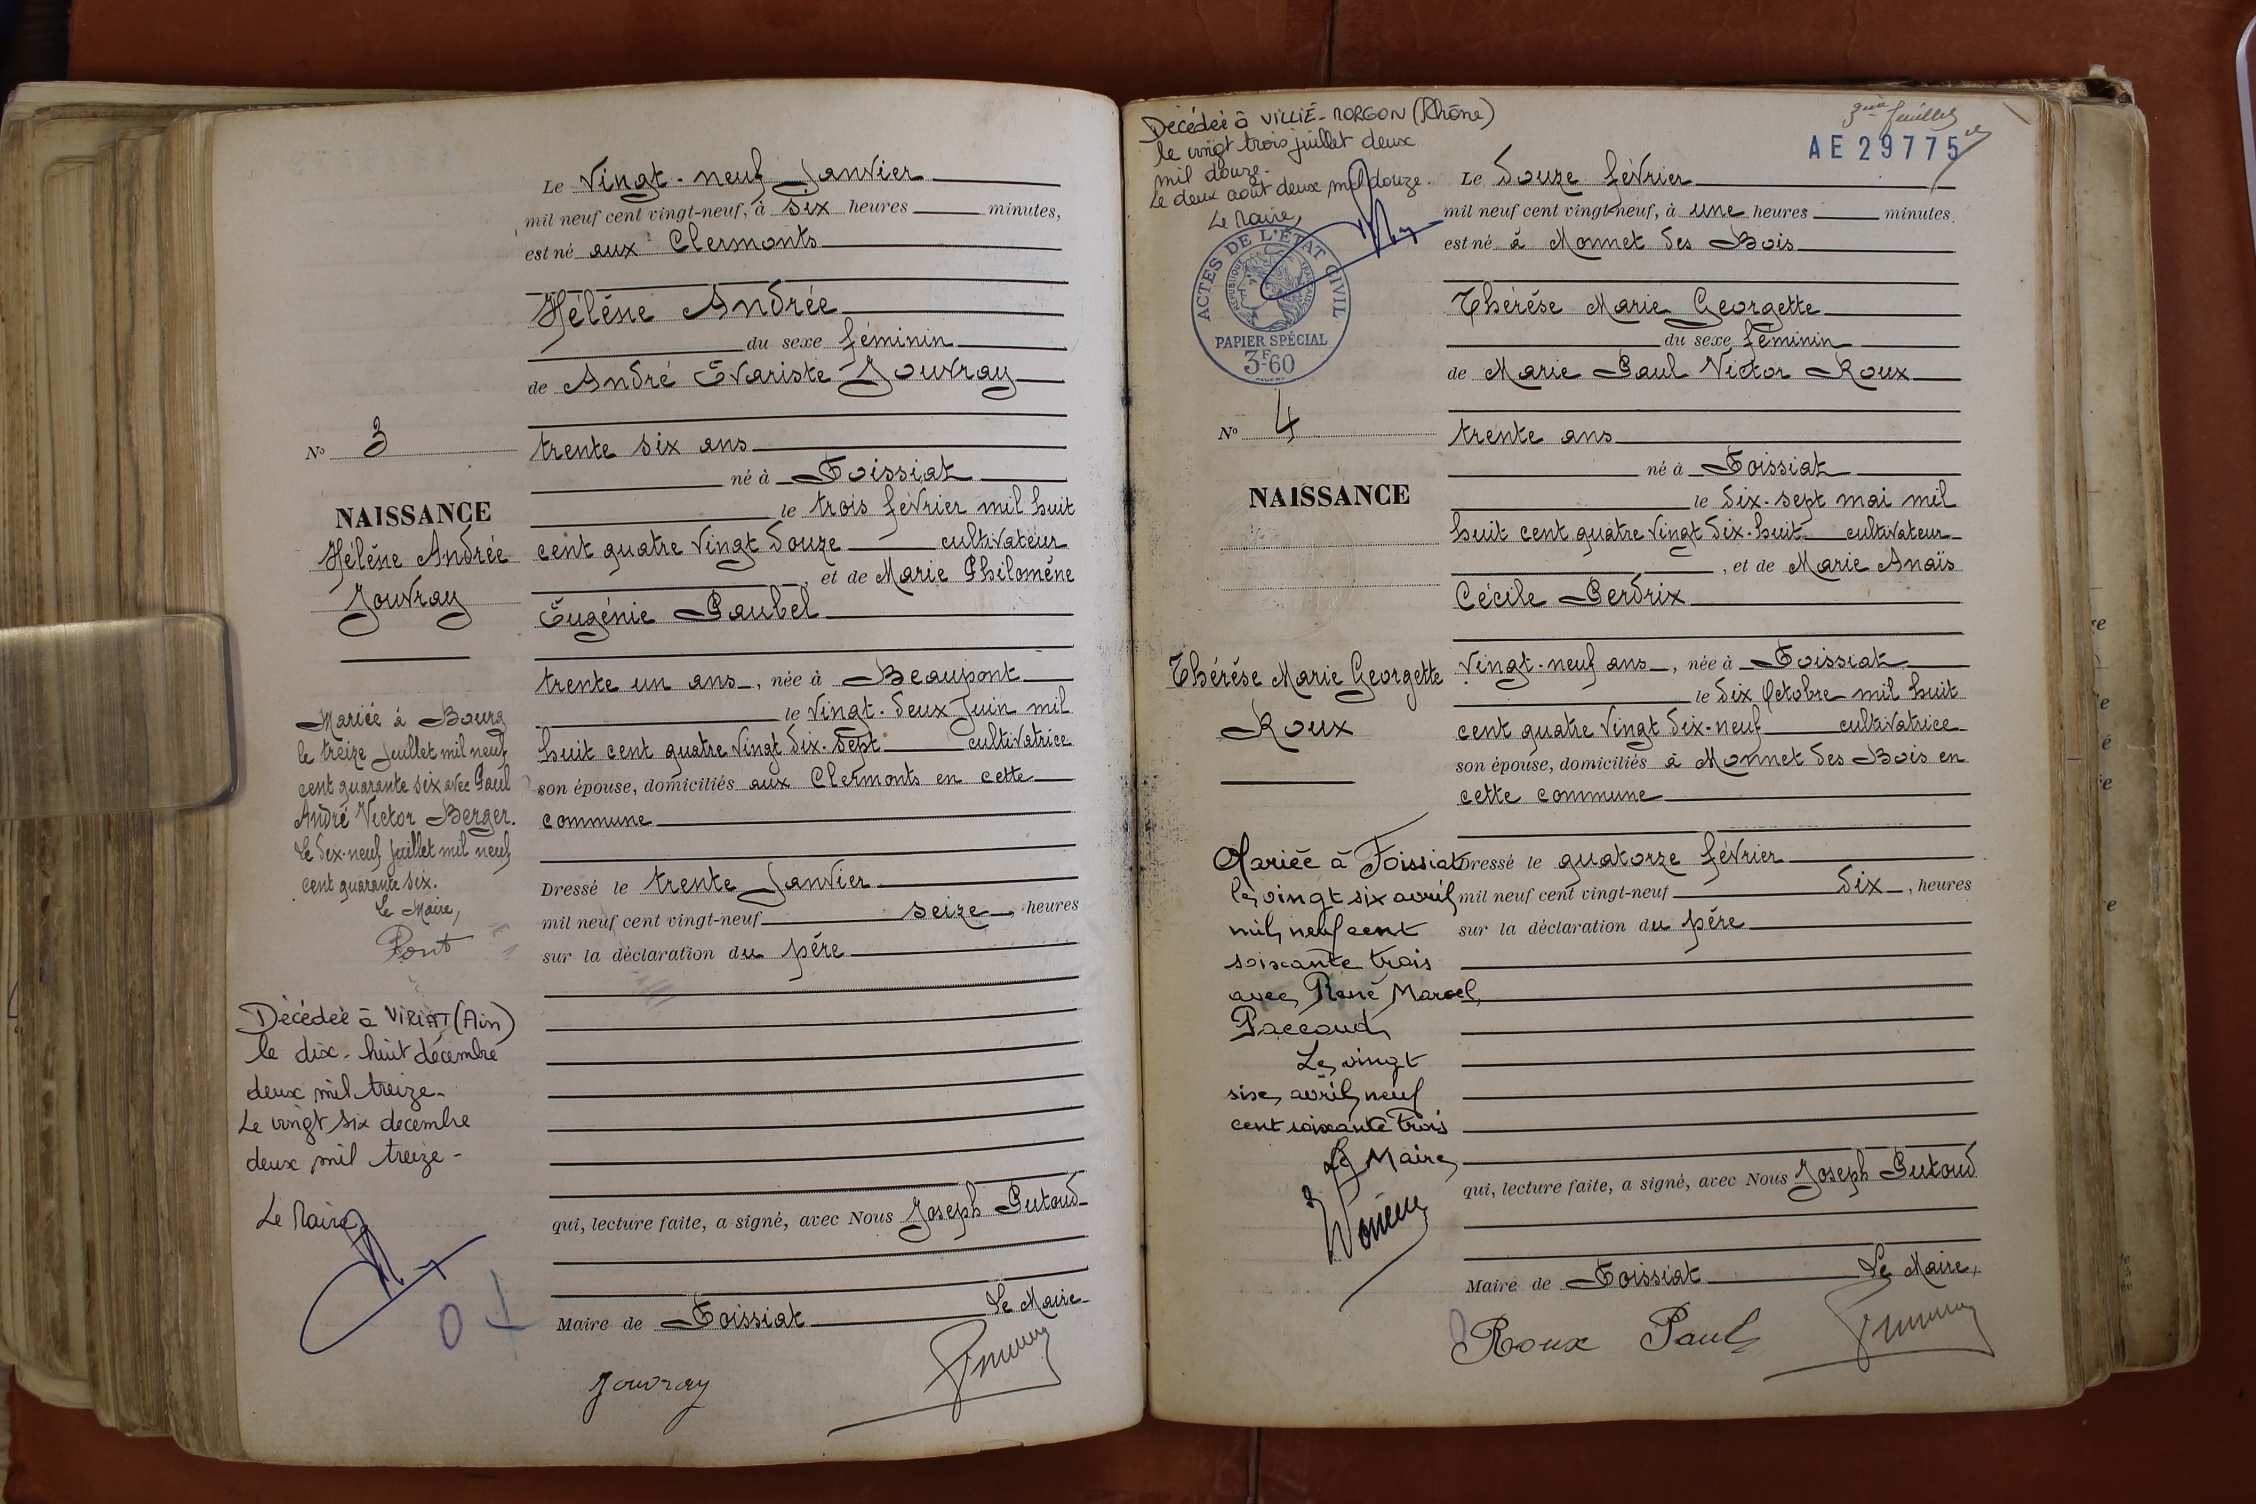 Le vingt-neuf Janvier
mil neuf cent vingt-neuf, à six heures minutes,
est né aux Clermonts
Hélène Andrée
du sexe féminin
de André Evariste Jouvray
trente six ans
né à Foissiat
le trois février mil huit
cent quatre vingt douze cultivateur
, et de Marie Philomène
Eugénie Paubel
trente un ans, née à Beaupont
le vingt-deux Juin mil
huit cent quatre vingt dix-sept cultivatrice
son épouse, domiciliés aux Clermonts en cette
commune
Dressé le trente Janvier
mil neuf cent vingt-neuf seize, heures
sur la déclaration du père
qui, lecture faite, a signé, avec Nous Joseph Putoud
Maire de Foissiat Le Maire
Jouvray
No 3
NAISSANCE
Hélène Andrée
Jouvray
Mariée à Bourg
le treize Juillet mil neuf
cent quarante six avec Paul
André Victor Berger.
Le dix-neuf Juillet mil neuf
cent quarante six.
Le Maire,
Pont
Décédée à VIRIAT (Ain)
le dix-huit décembre
deux mil treize-
Le vingt six decembre
deux mil treize-
Le Maire,
Décédée à VILLIÉ-MORGON (Rhône)
le vingt trois juillet deux
mil douze-
Le deux août deux mil douze.
Le Maire,
ACTES DE L'ÉTAT CIVIL
RÉPUBLIQUE FRANÇAISE
PAPIER SPÉCIAL
3F60
3ème feuillet
AE 29775
Le douze février
mil neuf cent vingt-neuf, à une heures minutes.
est né à Monnet des Bois
Thérèse Marie Georgette
du sexe féminin
de Marie Paul Victor Roux
trente ans
né à Foissiat
le dix-sept mai mil
huit cent quatre vingt dix-huit cultivateur
, et de Marie Anaïs
Cécile Perdrix
vingt-neuf ans, née à Foissiat
le dix Octobre mil huit
cent quatre vingt dix-neuf cultivatrice
son épouse, domiciliés à Monnet des Bois en
cette commune
Dressé le quatorze février
mil neuf cent vingt-neuf dix, heures
sur la déclaration du père
qui, lecture faite, a signé, avec Nous Joseph Putoud
Maire de Foissiat Le Maire,
Roux Paul
No 4
NAISSANCE
Thérèse Marie Georgette
Roux
Mariée à Foissiat
le vingt six avril
mil neuf cent
soixante trois
avec René Marcel
Paccoud
Le vingt
six avril neuf
cent soixante trois
Le Maire